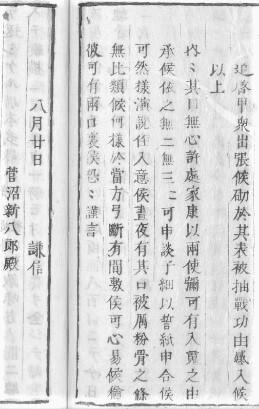 追啓甲衆出張候砌於其表被抽戰功由感入候
以上
內〻其口無心許處家康以兩使彌可有入魂之由
承候依之無二無三ニ可申談子細以誓紙申合候
可然樣演說任入意候晝夜有其口被厲粉骨之條
無比類候何樣於當方弓斷有間敷候可心易候猶
彼可有兩口裏候恐〻謹言
八月廿日
謙信
菅沼新八郎殿